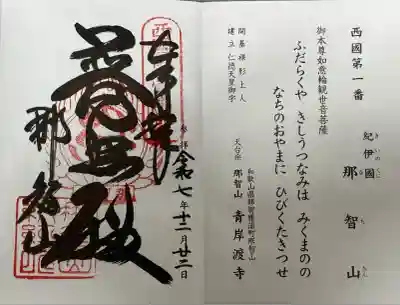 西國第一番
紀伊國 那智山
御本尊如意輪観世音菩薩
ふだらくや きしうつなみは みくまのの
なちのおやまに ひびくたきつせ
開基 裸形上人
建立 仁徳天皇御宇
和歌山県那智勝浦町那智山
天台宗
那智山 青岸渡寺
令和七年十二月廿二日
普照殿
那智山